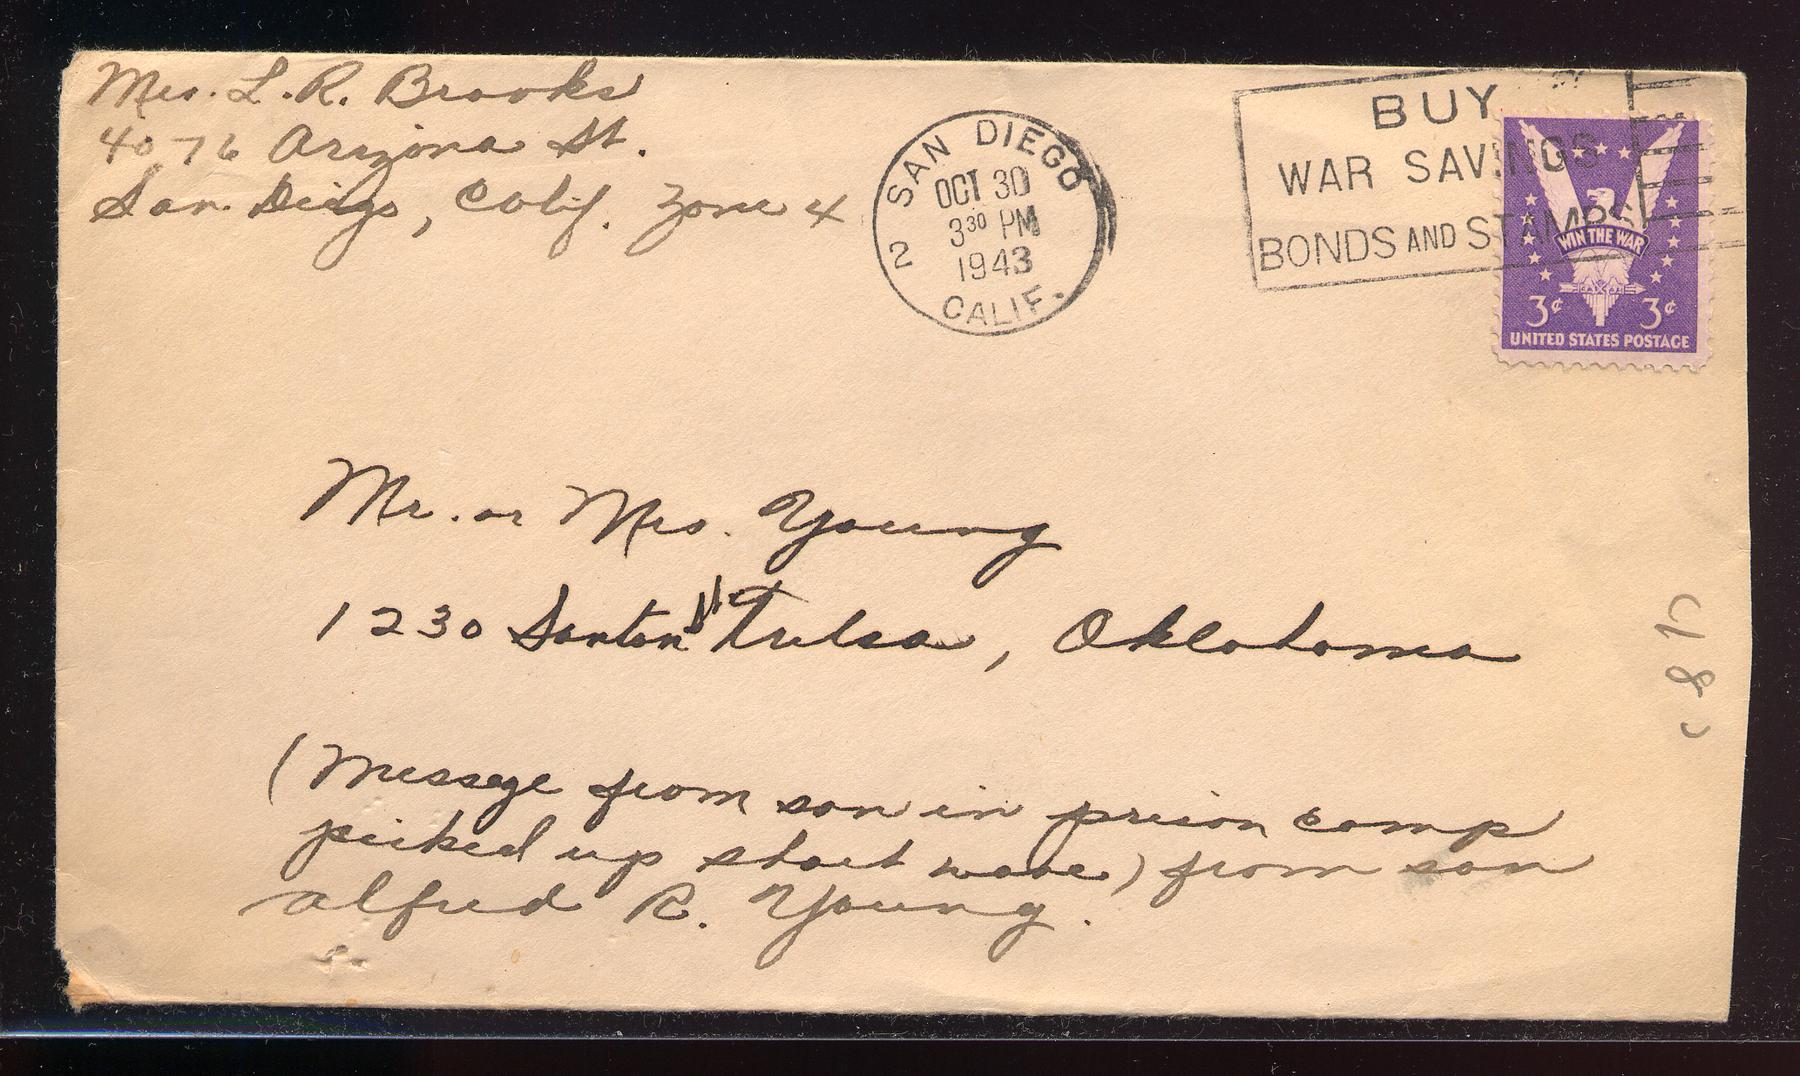 Mrs. L. R. Brooks
4076 Arizona St.
San Diego, Calif. Zone 4
SAN DIEGO
OCT 30
3 30 PM
1943
2
CALIF.
BUY
WAR SAVINGS
BONDS AND STAMPS
WIN THE WAR
3¢ 3¢
UNITED STATES POSTAGE
Mr. or Mrs. Young
1230 Tulsa, Oklahoma
(Message from son in prison camp
picked up short wave) from son
Alfred R. Young.